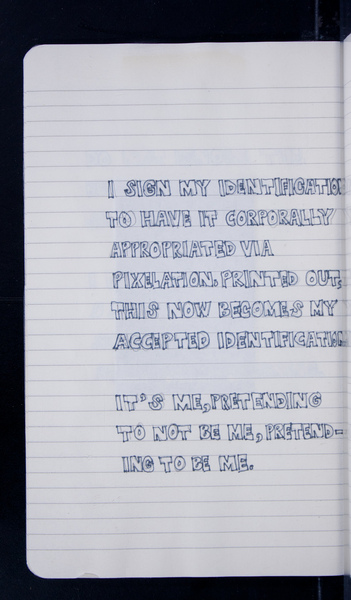 I SIGN MY IDENTIFICATION
TO HAVE IT CORPORALLY
APPROPRIATED VIA
PIXELATION. PRINTED OUT,
THIS NOW BECOMES MY
ACCEPTED IDENTIFICATION
IT'S ME, PRETENDING
TO NOT BE ME, PRETEND-
ING TO BE ME.